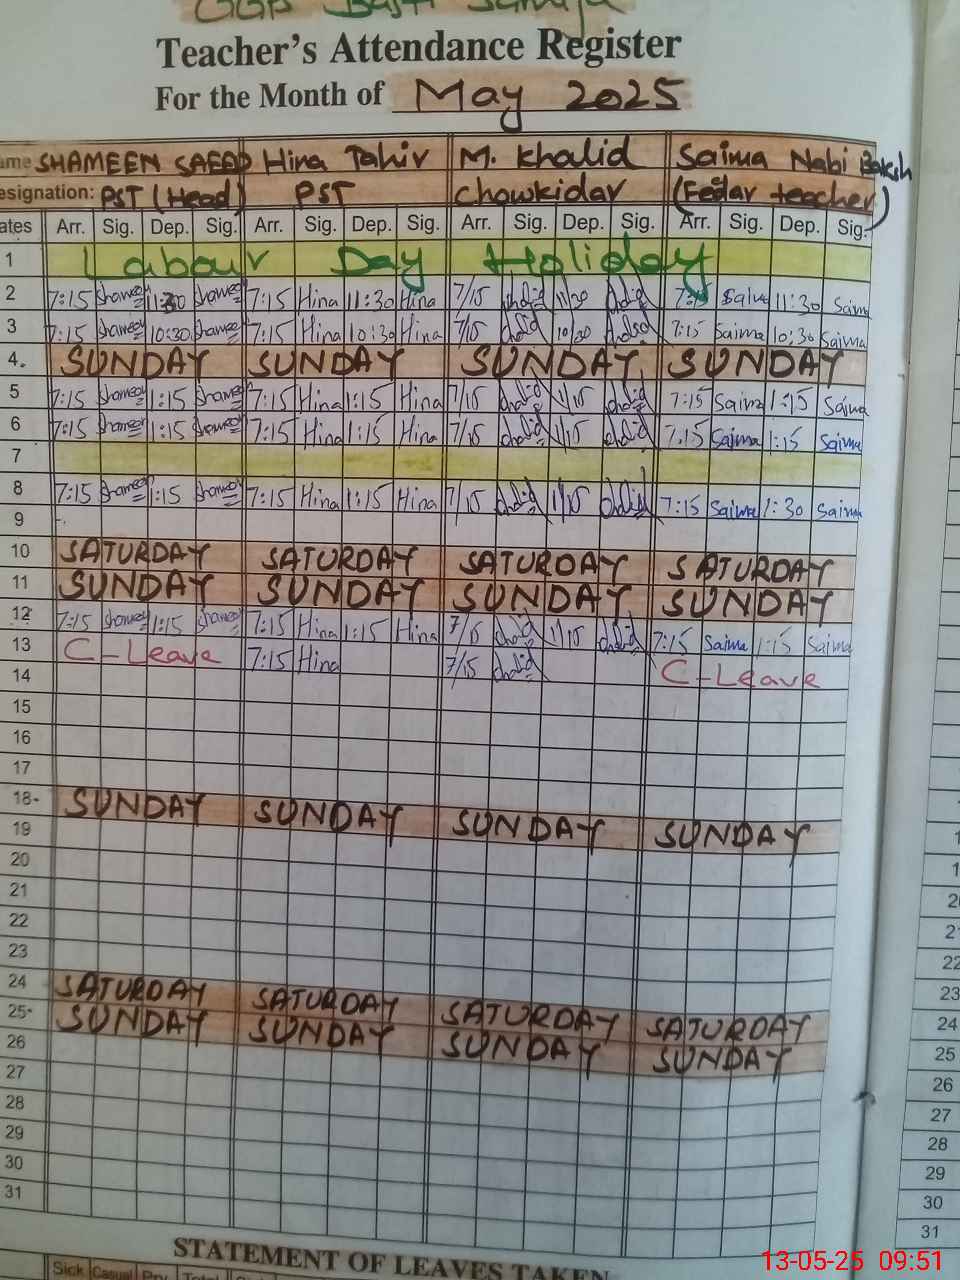 GGP Basti
Teacher's Attendance Register
For the Month of May 2025
ame SHAMEEN SAEED Hina Tahir M. Khalid Saima Nabi Baksh
esignation: PST (Head) PST Chowkidar (Feder teacher)
ates Arr. Sig. Dep. Sig. Arr. Sig. Dep. Sig. Arr. Sig. Dep. Sig. Arr. Sig. Dep. Sig.
1 Labour Day Holiday
2 7:15 Shameen 11:30 Shameen 7:15 Hina 11:30 Hina 7/15 Khalid 11/30 Khalid 7:15 Saima 11:30 Saima
3 7:15 Shameen 10:30 Shameen 7:15 Hina 10:30 Hina 7/15 Khalid 10/30 Khalid 7:15 Saima 10:30 Saima
4. SUNDAY SUNDAY SUNDAY SUNDAY
5 7:15 Shameen 1:15 Shameen 7:15 Hina 1:15 Hina 7/15 Khalid 1/15 Khalid 7:15 Saima 1:15 Saima
6 7:15 Shameen 1:15 Shameen 7:15 Hina 1:15 Hina 7/15 Khalid 1/15 Khalid 7:15 Saima 1:15 Saima
7
8 7:15 Shameen 1:15 Shameen 7:15 Hina 1:15 Hina 7/15 Khalid 1/15 Khalid 7:15 Saima 1:30 Saima
9
10 SATURDAY SATURDAY SATURDAY SATURDAY
11 SUNDAY SUNDAY SUNDAY SUNDAY
12 7:15 Shameen 1:15 Shameen 7:15 Hina 1:15 Hina 7/15 Khalid 1/15 Khalid 7:15 Saima 1:15 Saima
13 C-Leave 7:15 Hina 7/15 Khalid C-Leave
14
15
16
17
18- SUNDAY SUNDAY SUNDAY SUNDAY
19
20
21
22
23
24 SATURDAY SATURDAY SATURDAY SATURDAY
25- SUNDAY SUNDAY SUNDAY SUNDAY
26
27
28
29
30
31
STATEMENT OF LEAVES TAKEN
Sick Casual Total
22
23
24
25
26
27
28
29
30
31
13-05-25 09:51